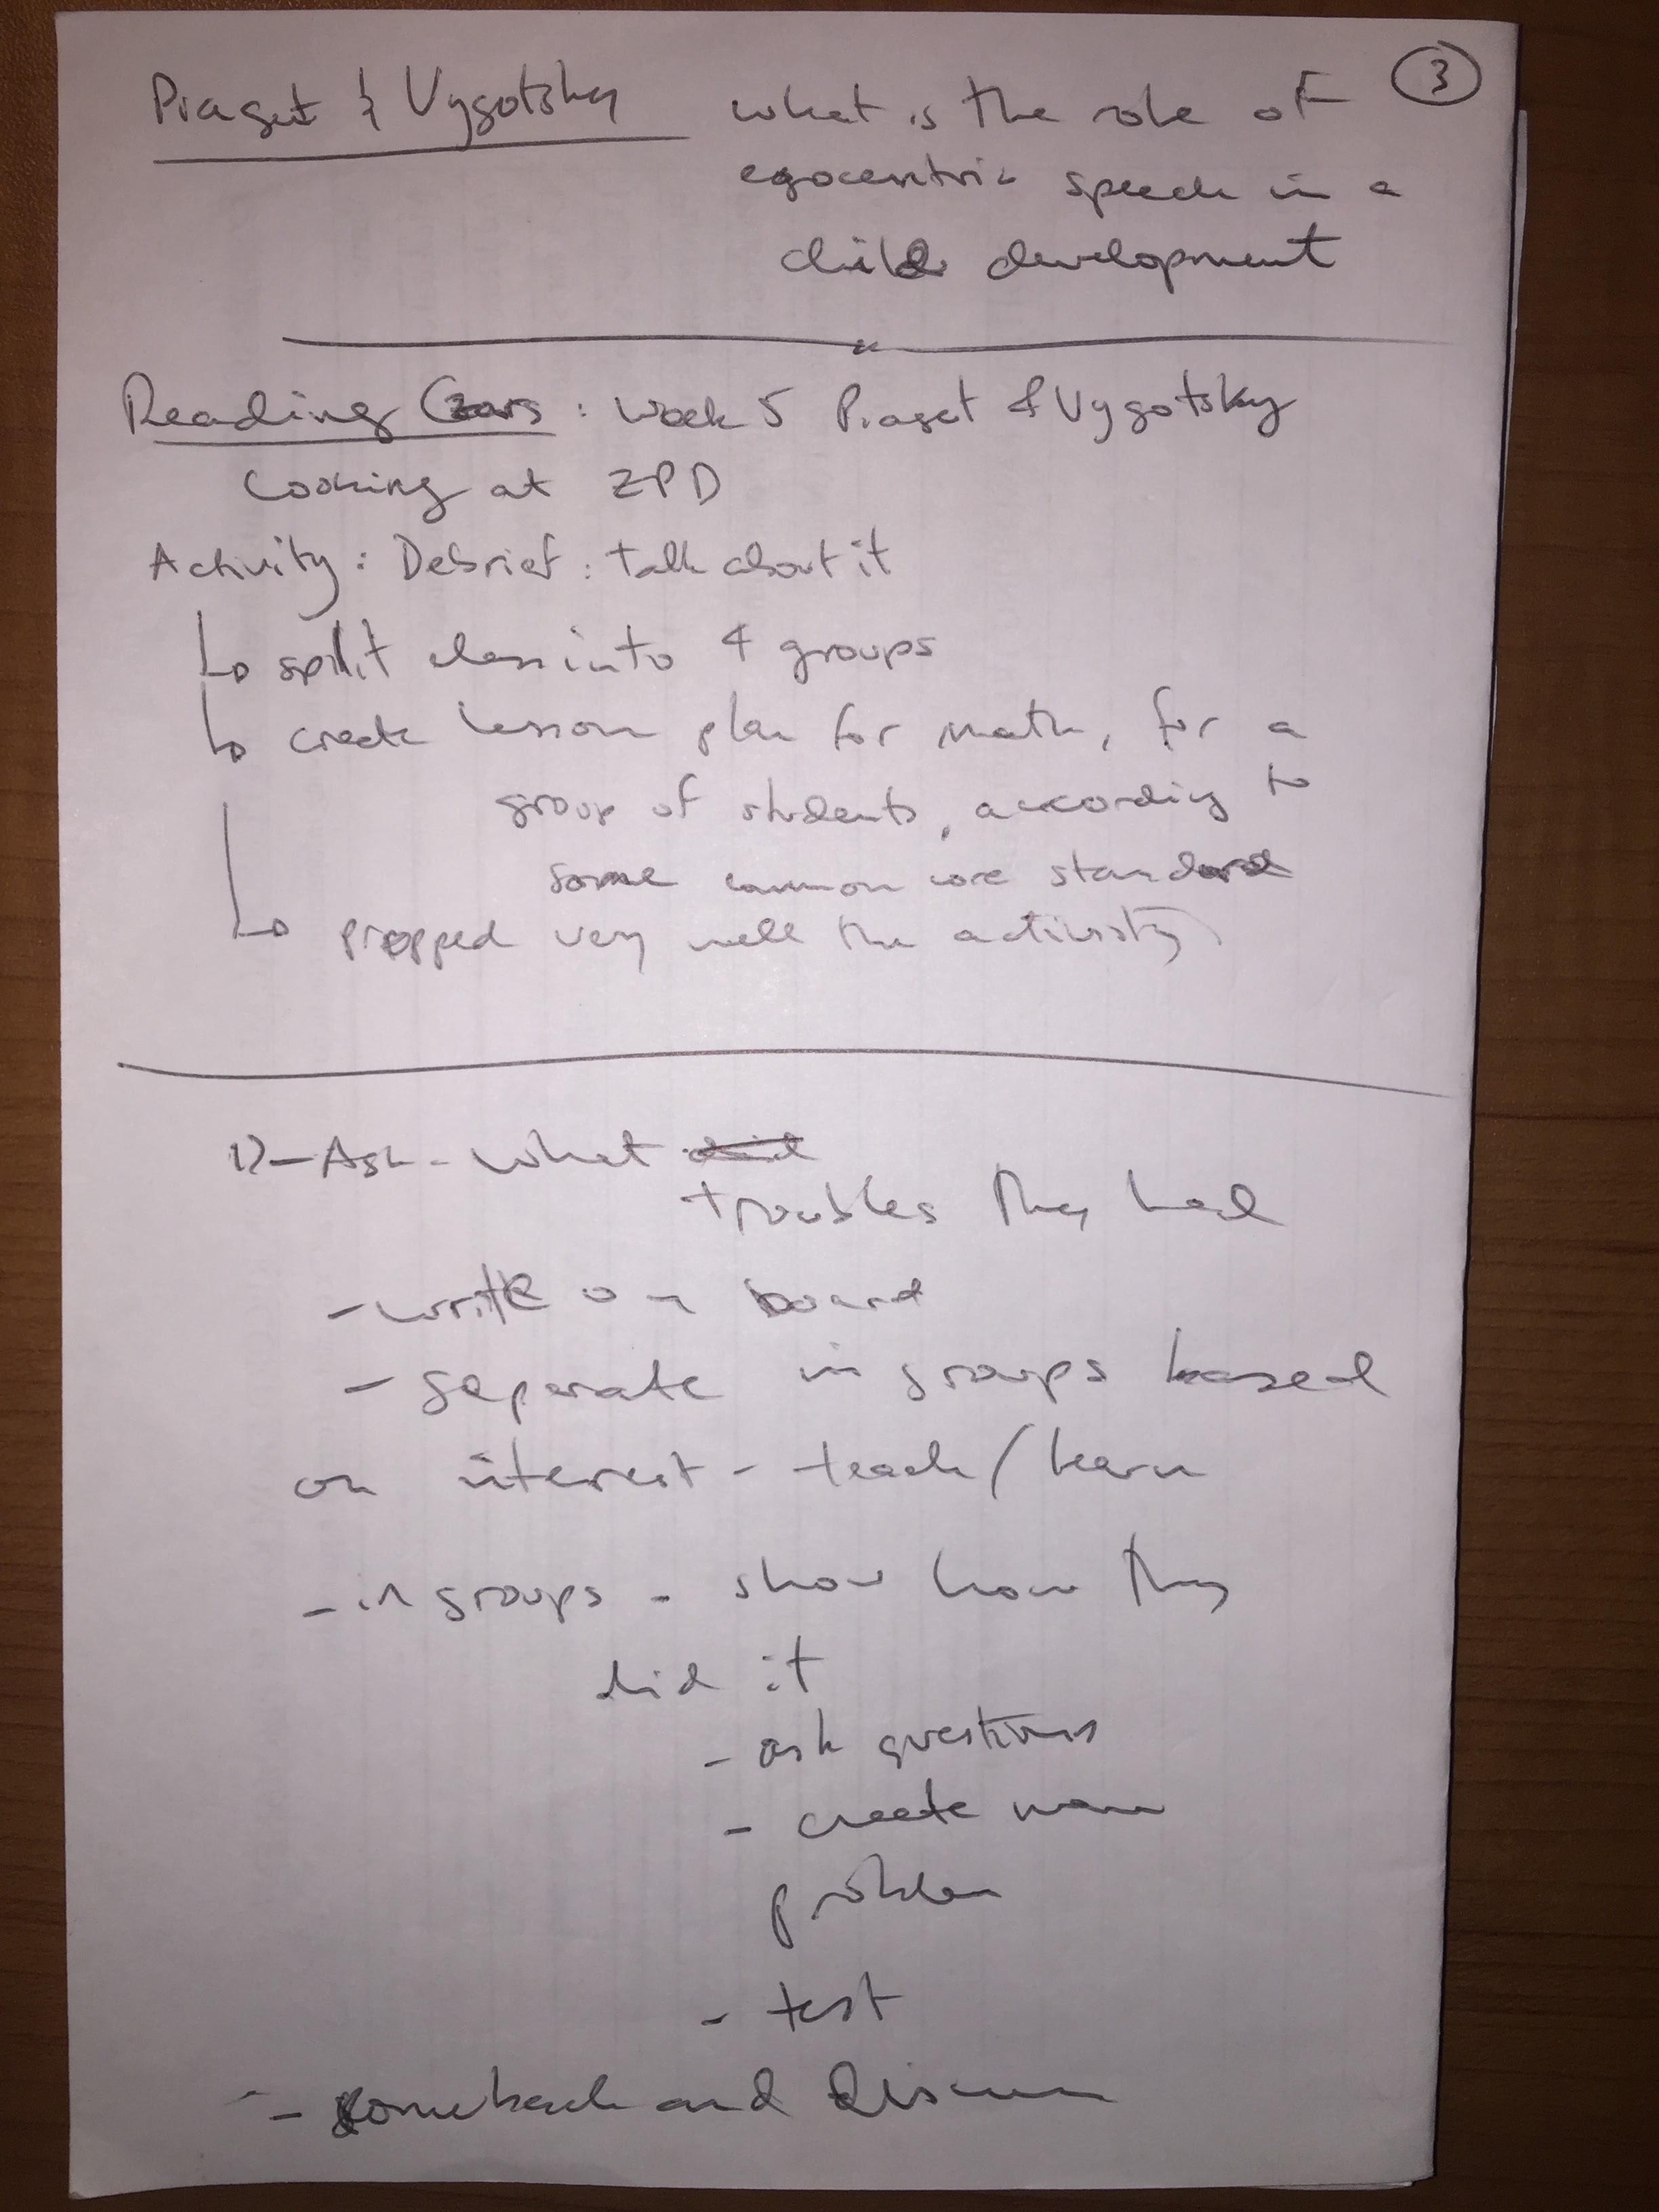 Piaget & Vygotsky what is the role of ③
egocentric speech in a
child development
Reading Czars : Week 5 Piaget & Vygotsky
Looking at ZPD
Activity : Debrief : talk about it
split class into 4 groups
create lesson plan for math, for a
group of students, according to
some common core standard
prepped very well the activity
1) - Ask - what
troubles they had
- write on board
- separate in groups based
on interest - teach / learn
- in groups - show how they
did it
- ask questions
- create
problem
- test
- come back and discuss